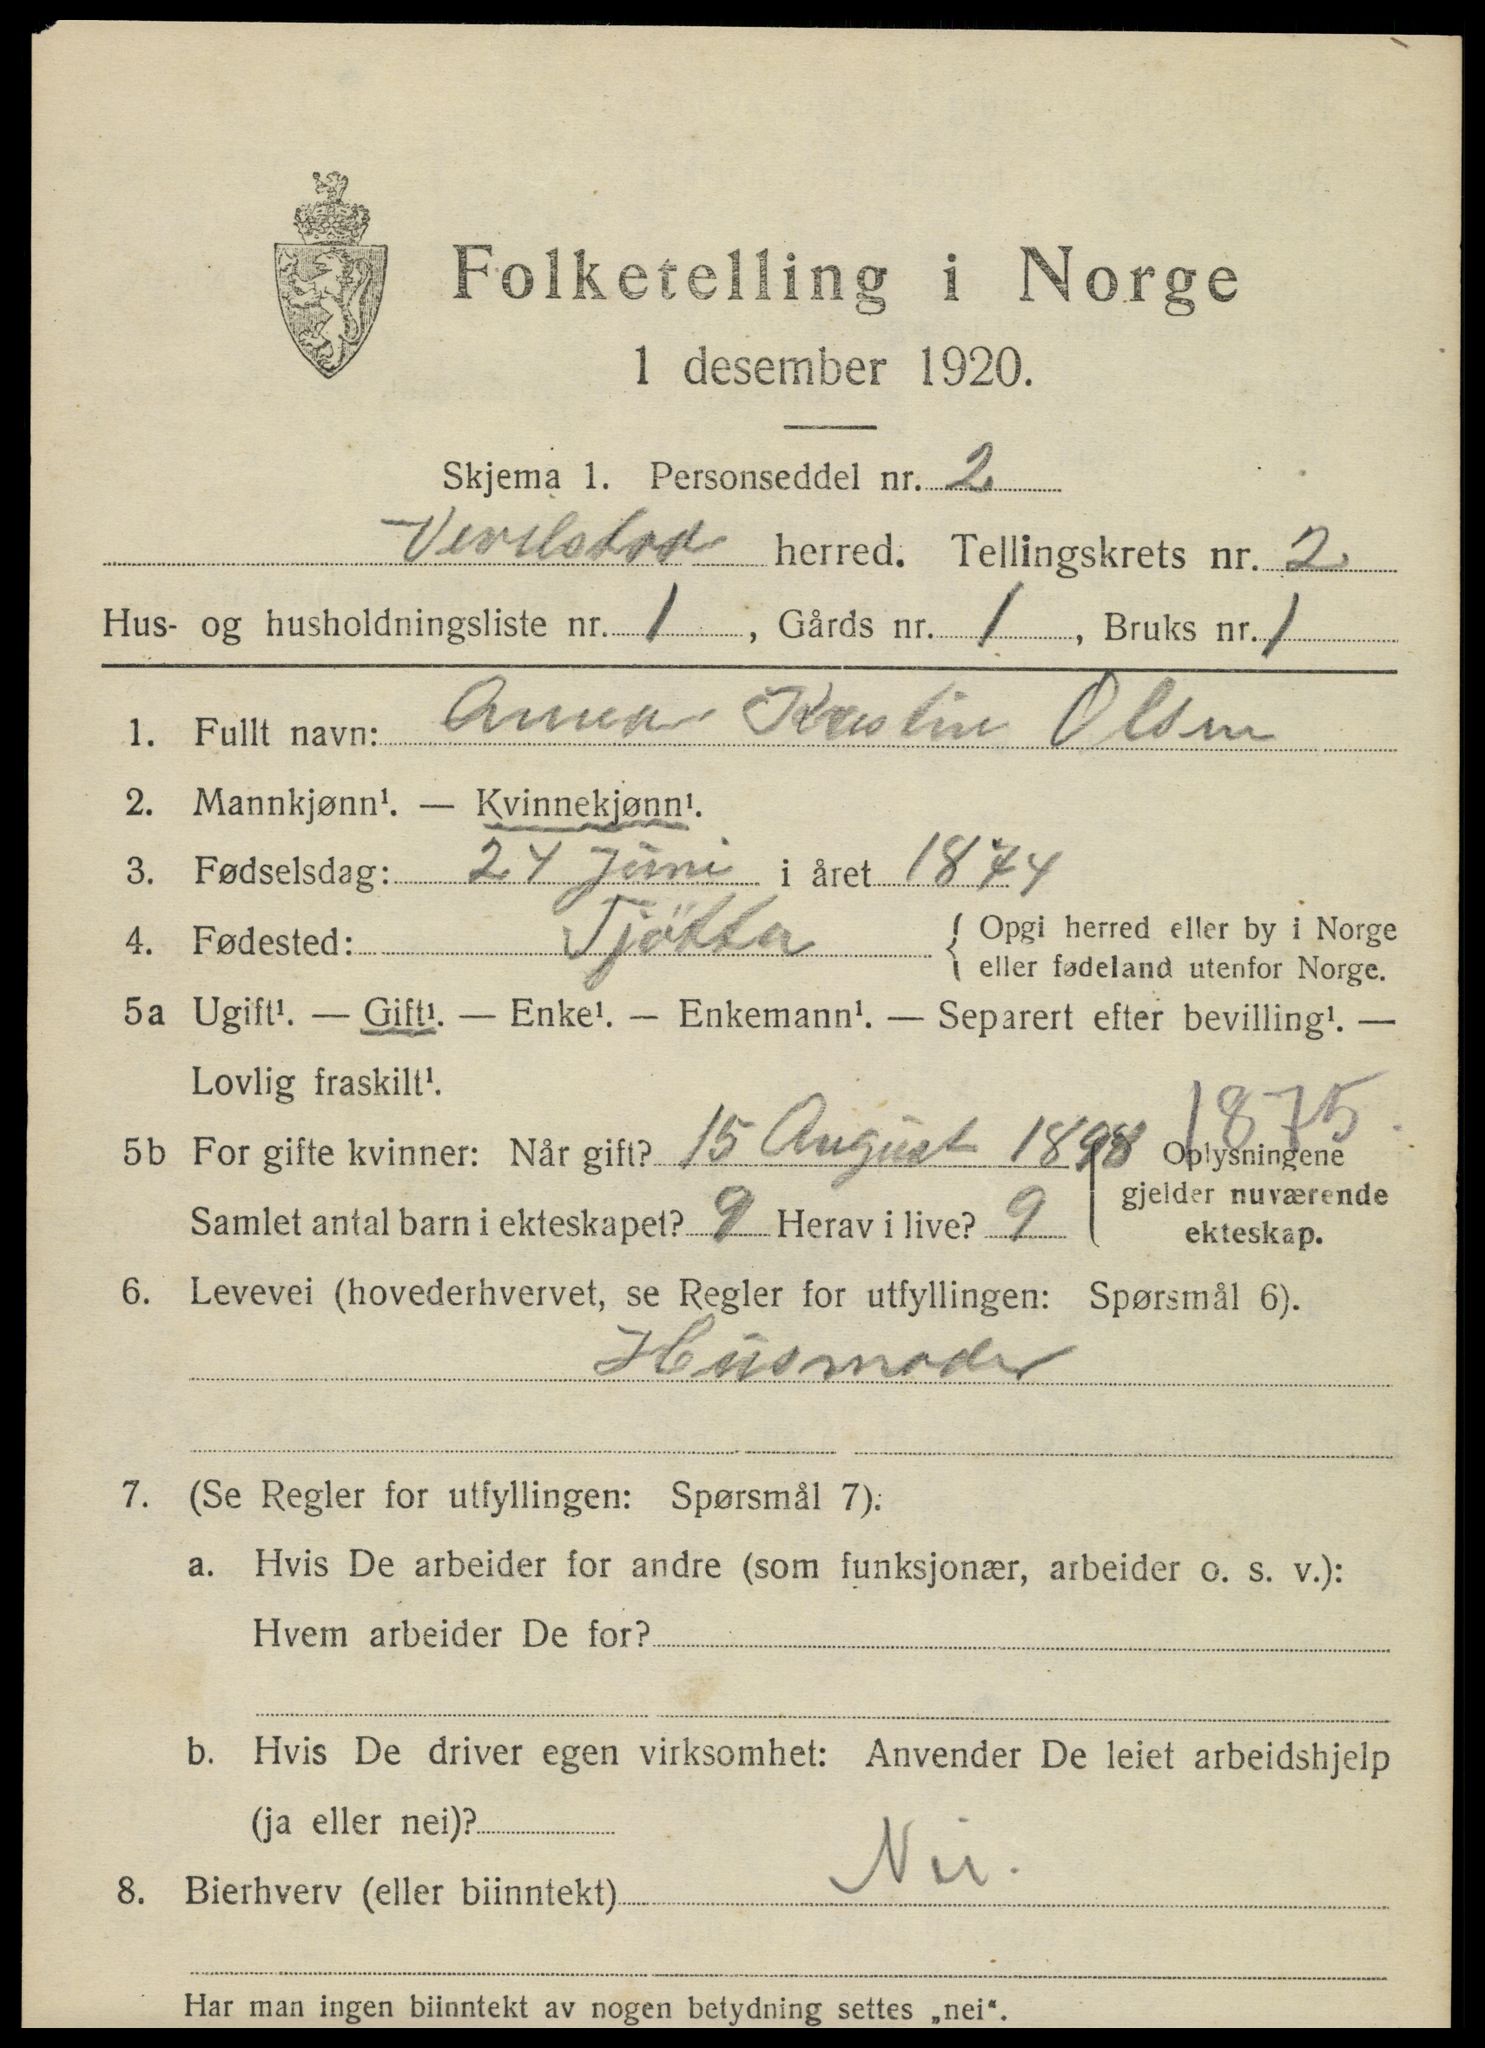 Folketelling i Norge
1 desember 1920.
Skjema 1. Personseddel nr. 2
herred. Tellingskrets nr. 2
Hus- og husholdningsliste nr. 1, Gårds nr. 1, Bruks nr. 1
1. Fullt navn: Anna Kristine Olsen
2. Mannkjønn¹. — Kvinnekjønn¹.
3. Fødselsdag: 24 Juni i året 1874
4. Fødested: Tjötta { Opgi herred eller by i Norge
eller fødeland utenfor Norge.
5a Ugift¹. — Gift¹. — Enke¹. — Enkemann¹. — Separert efter bevilling¹. —
Lovlig fraskilt¹.
1875.
5b For gifte kvinner: Når gift? 15 August 1898 Oplysningene
gjelder nuværende
Samlet antal barn i ekteskapet? 9 Herav i live? 9
ekteskap.
6. Levevei (hovederhvervet, se Regler for utfyllingen: Spørsmål 6).
Husmoder
7. (Se Regler for utfyllingen: Spørsmål 7):
a. Hvis De arbeider for andre (som funksjonær, arbeider o. s. v.):
Hvem arbeider De for?
b. Hvis De driver egen virksomhet: Anvender De leiet arbeidshjelp
(ja eller nei)?
8. Bierhverv (eller biinntekt) Nei.
Har man ingen biinntekt av nogen betydning settes „nei“.